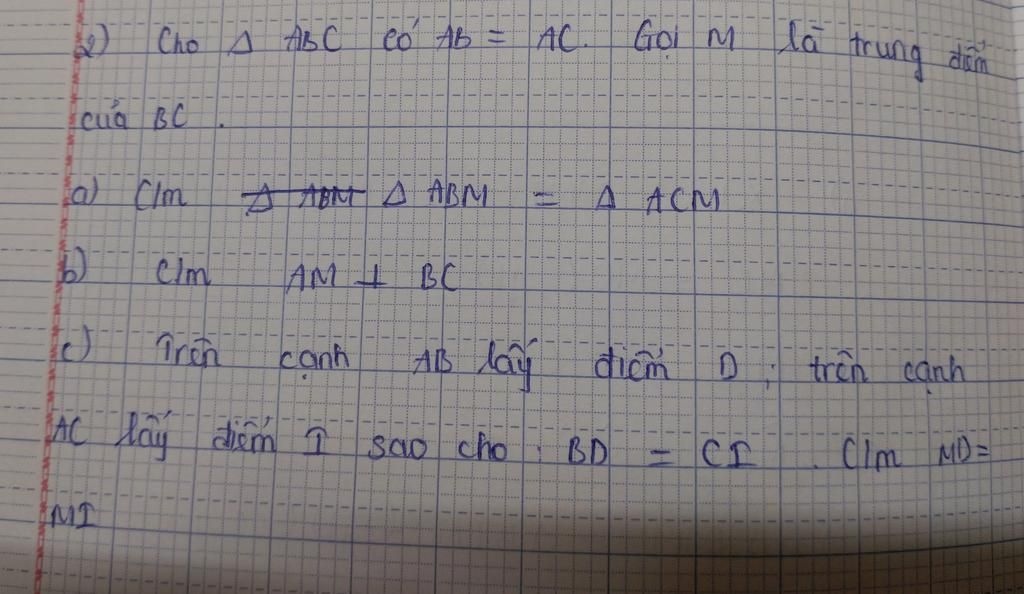 2) Cho Δ ABC có Ab = AC. Gọi M là trung điểm
của BC .
a) C/m Δ ABM Δ ABM = Δ ACM
b) C/m AM ⊥ BC
c) Trên cạnh AB lấy điểm D ; trên cạnh
AC lấy điểm I sao cho : BD = CI . C/m MD=
MI